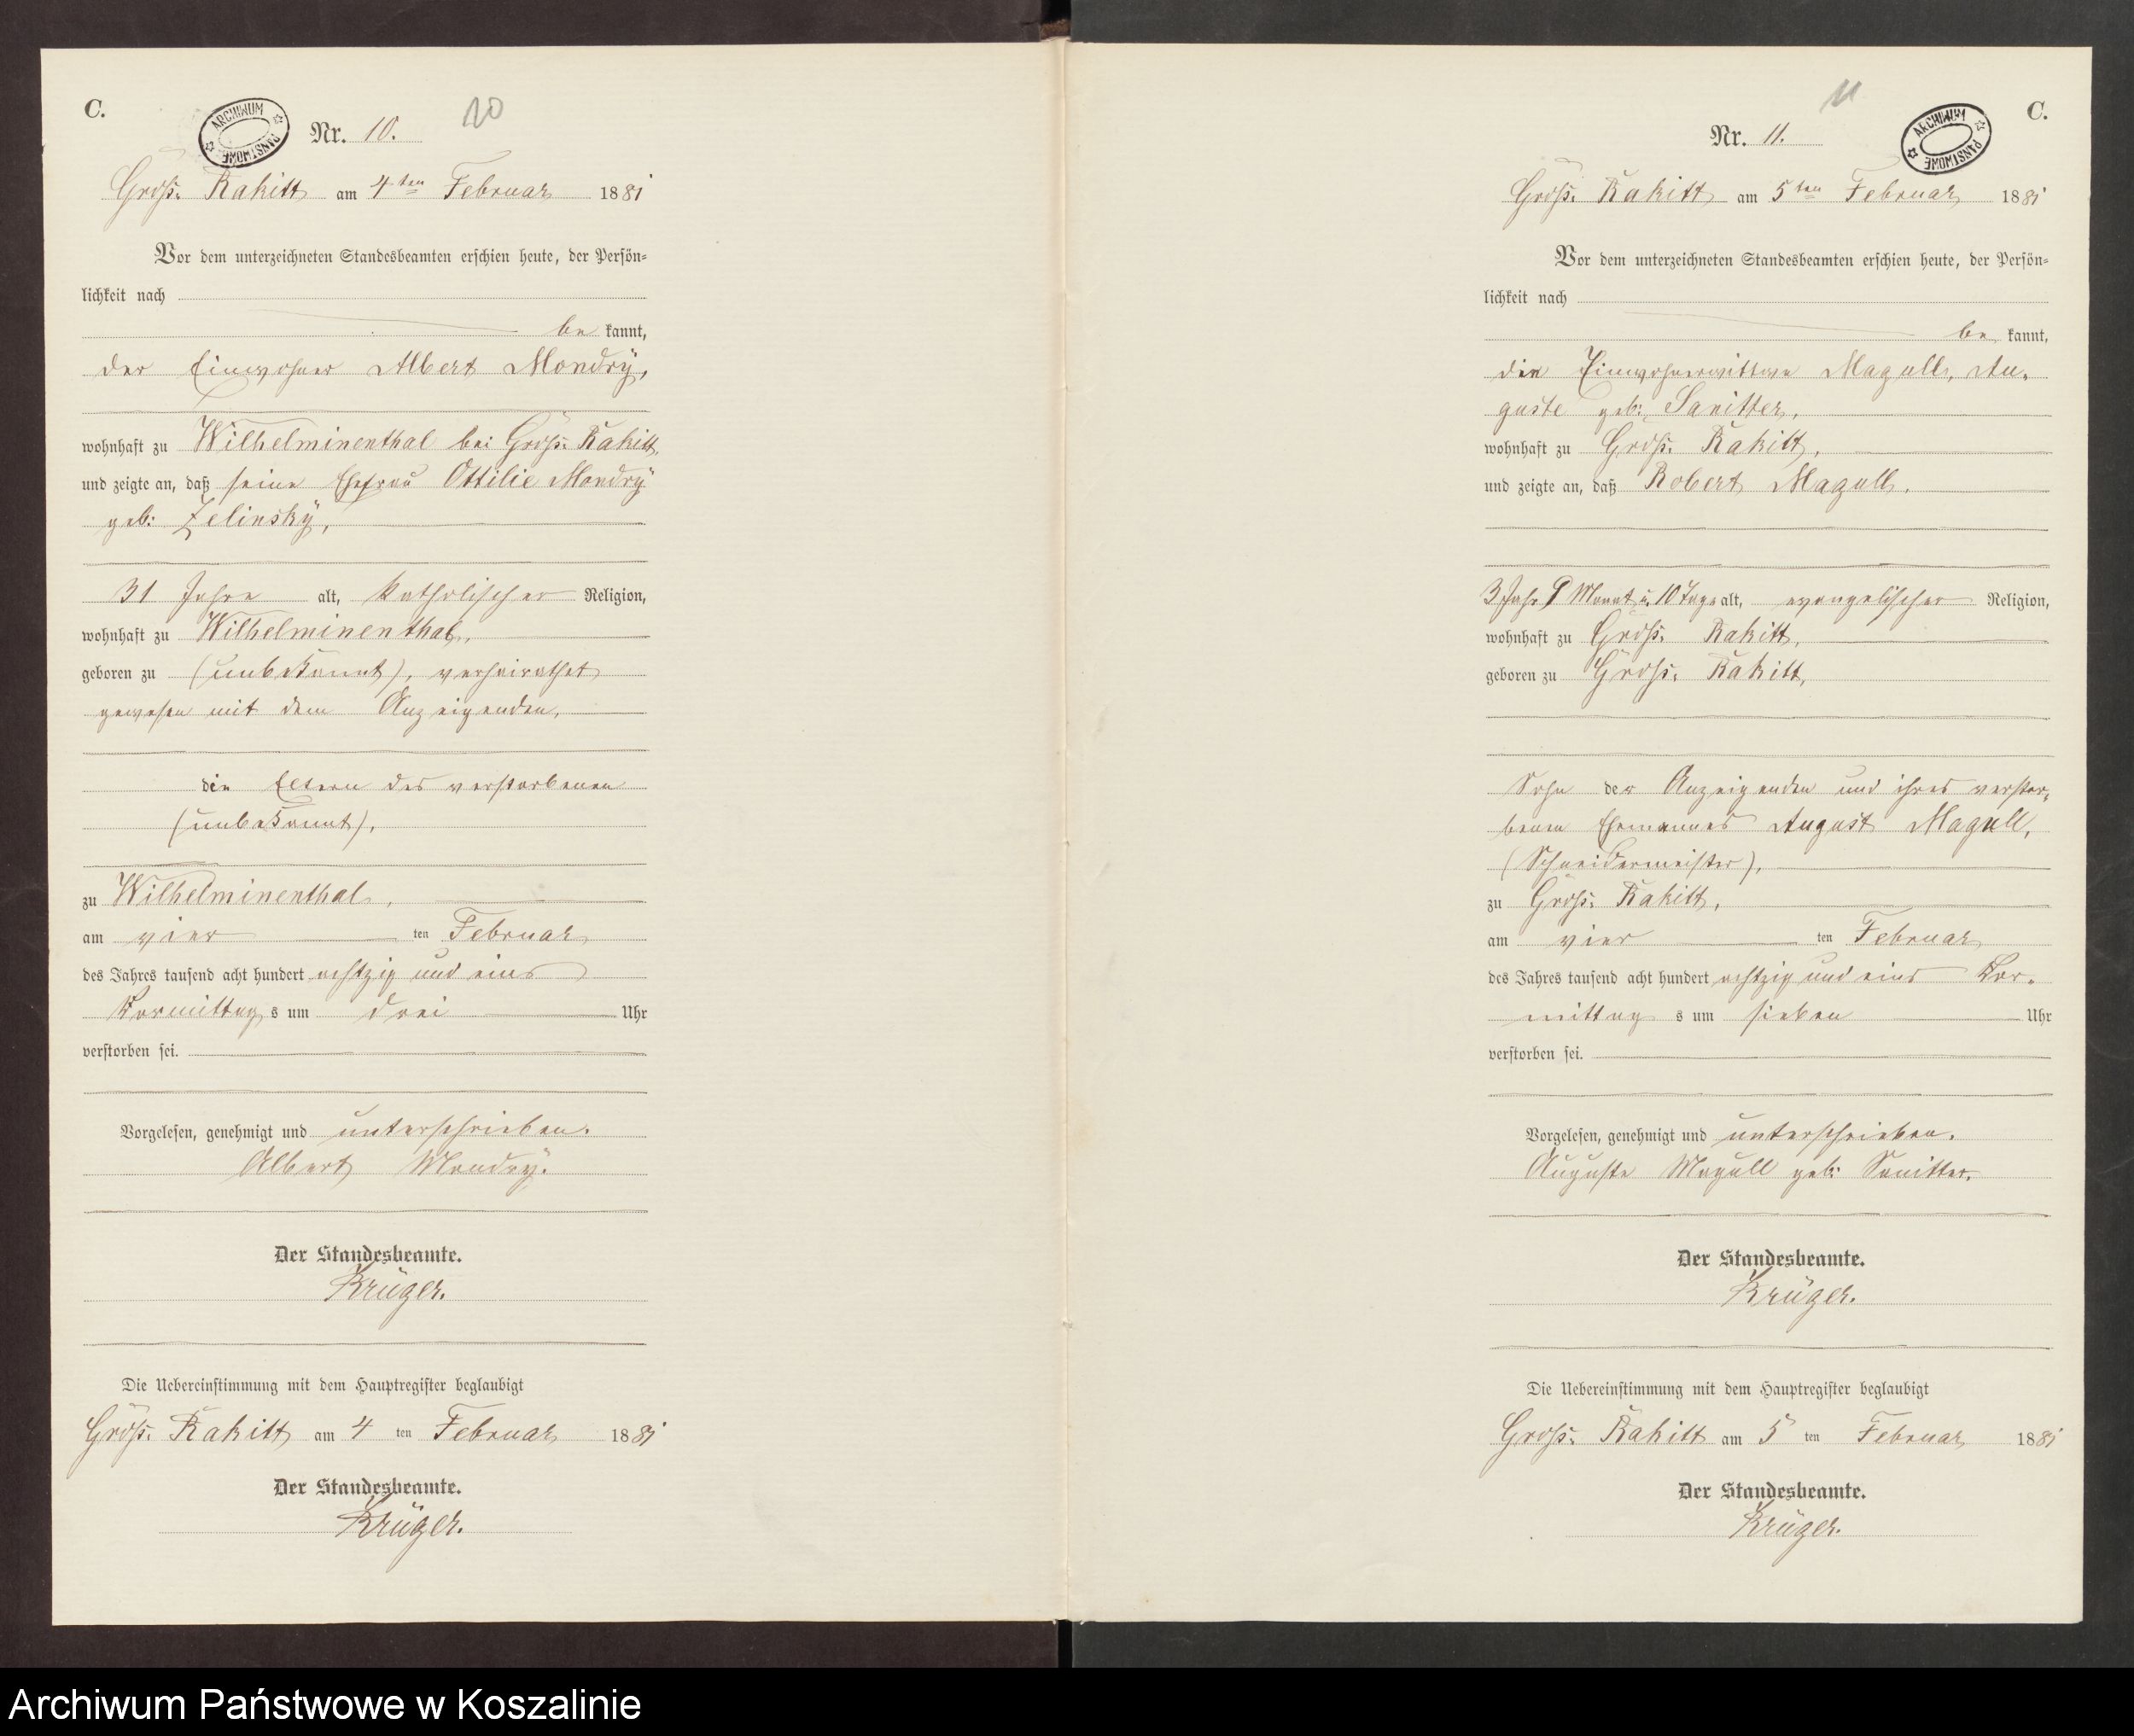 C.
ARCHIWUM PAŃSTWOWE
Nr. 10.
10
Groß: Rakitt am 4ten Februar 1881
Vor dem unterzeichneten Standesbeamten erschien heute, der Persön=
lichkeit nach
be kannt,
der Einwohner Albert Mondry,
wohnhaft zu Wilhelminenthal bei Groß: Rakitt,
und zeigte an, daß seine Ehefrau Ottilie Mondry
geb: Zelinsky,
31 Jahre alt, katholischer Religion,
wohnhaft zu Wilhelminenthal,
geboren zu (unbekannt), verheirathet
gewesen mit dem Anzeigenden,
die Eltern des verstorbenen
(unbekannt),
zu Wilhelminenthal,
am vier ten Februar
des Jahres tausend acht hundert achtzig und eins
Vormittag s um drei Uhr
verstorben sei.
Vorgelesen, genehmigt und unterschrieben.
Albert Mondry.
Der Standesbeamte.
Krüger.
Die Uebereinstimmung mit dem Hauptregister beglaubigt
Groß: Rakitt am 4 ten Februar 1881
Der Standesbeamte.
Krüger.
11
C.
Nr. 11.
ARCHIWUM PAŃSTWOWE
Groß: Rakitt am 5ten Februar 1881
Vor dem unterzeichneten Standesbeamten erschien heute, der Persön=
lichkeit nach
be kannt,
die Einwohnerwittwe Magull, Au=
guste geb: Sanitter,
wohnhaft zu Groß: Rakitt,
und zeigte an, daß Robert Magull,
3 Jahr 9 Monat u. 10 Tage alt, evangelischer Religion,
wohnhaft zu Groß: Rakitt,
geboren zu Groß: Rakitt,
Sohn der Anzeigenden und ihres verstor=
benen Ehemannes August Magull,
(Schneidermeister),
zu Groß: Rakitt,
am vier ten Februar
des Jahres tausend acht hundert achtzig und eins Vor=
mittag s um sieben Uhr
verstorben sei.
Vorgelesen, genehmigt und unterschrieben.
Auguste Magull geb: Sanitter.
Der Standesbeamte.
Krüger.
Die Uebereinstimmung mit dem Hauptregister beglaubigt
Groß: Rakitt am 5 ten Februar 1881
Der Standesbeamte.
Krüger.
Archiwum Państwowe w Koszalinie